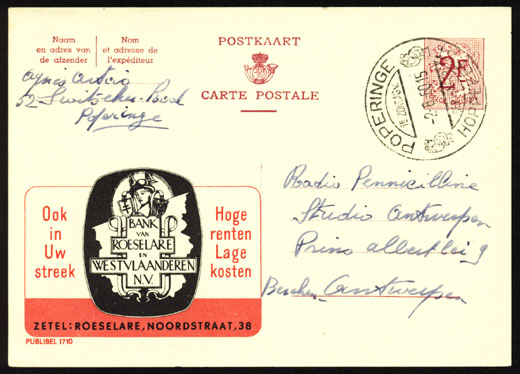 Naam
en adres van
de afzender
Nom
et adresse de
l'expéditeur
POSTKAART
CARTE POSTALE
2F
POPERINGE
HOPPE
52
Poperinge
Radio Pennicilline
Studio Antwerpen
Prins Albertlei 9
Berchem Antwerpen
Ook
in
Uw
streek
BANK
VAN
ROESELARE
EN
WESTVLAANDEREN
N.V.
Hoge
renten
Lage
kosten
ZETEL: ROESELARE, NOORDSTRAAT, 38
PUBLIBEL 1710